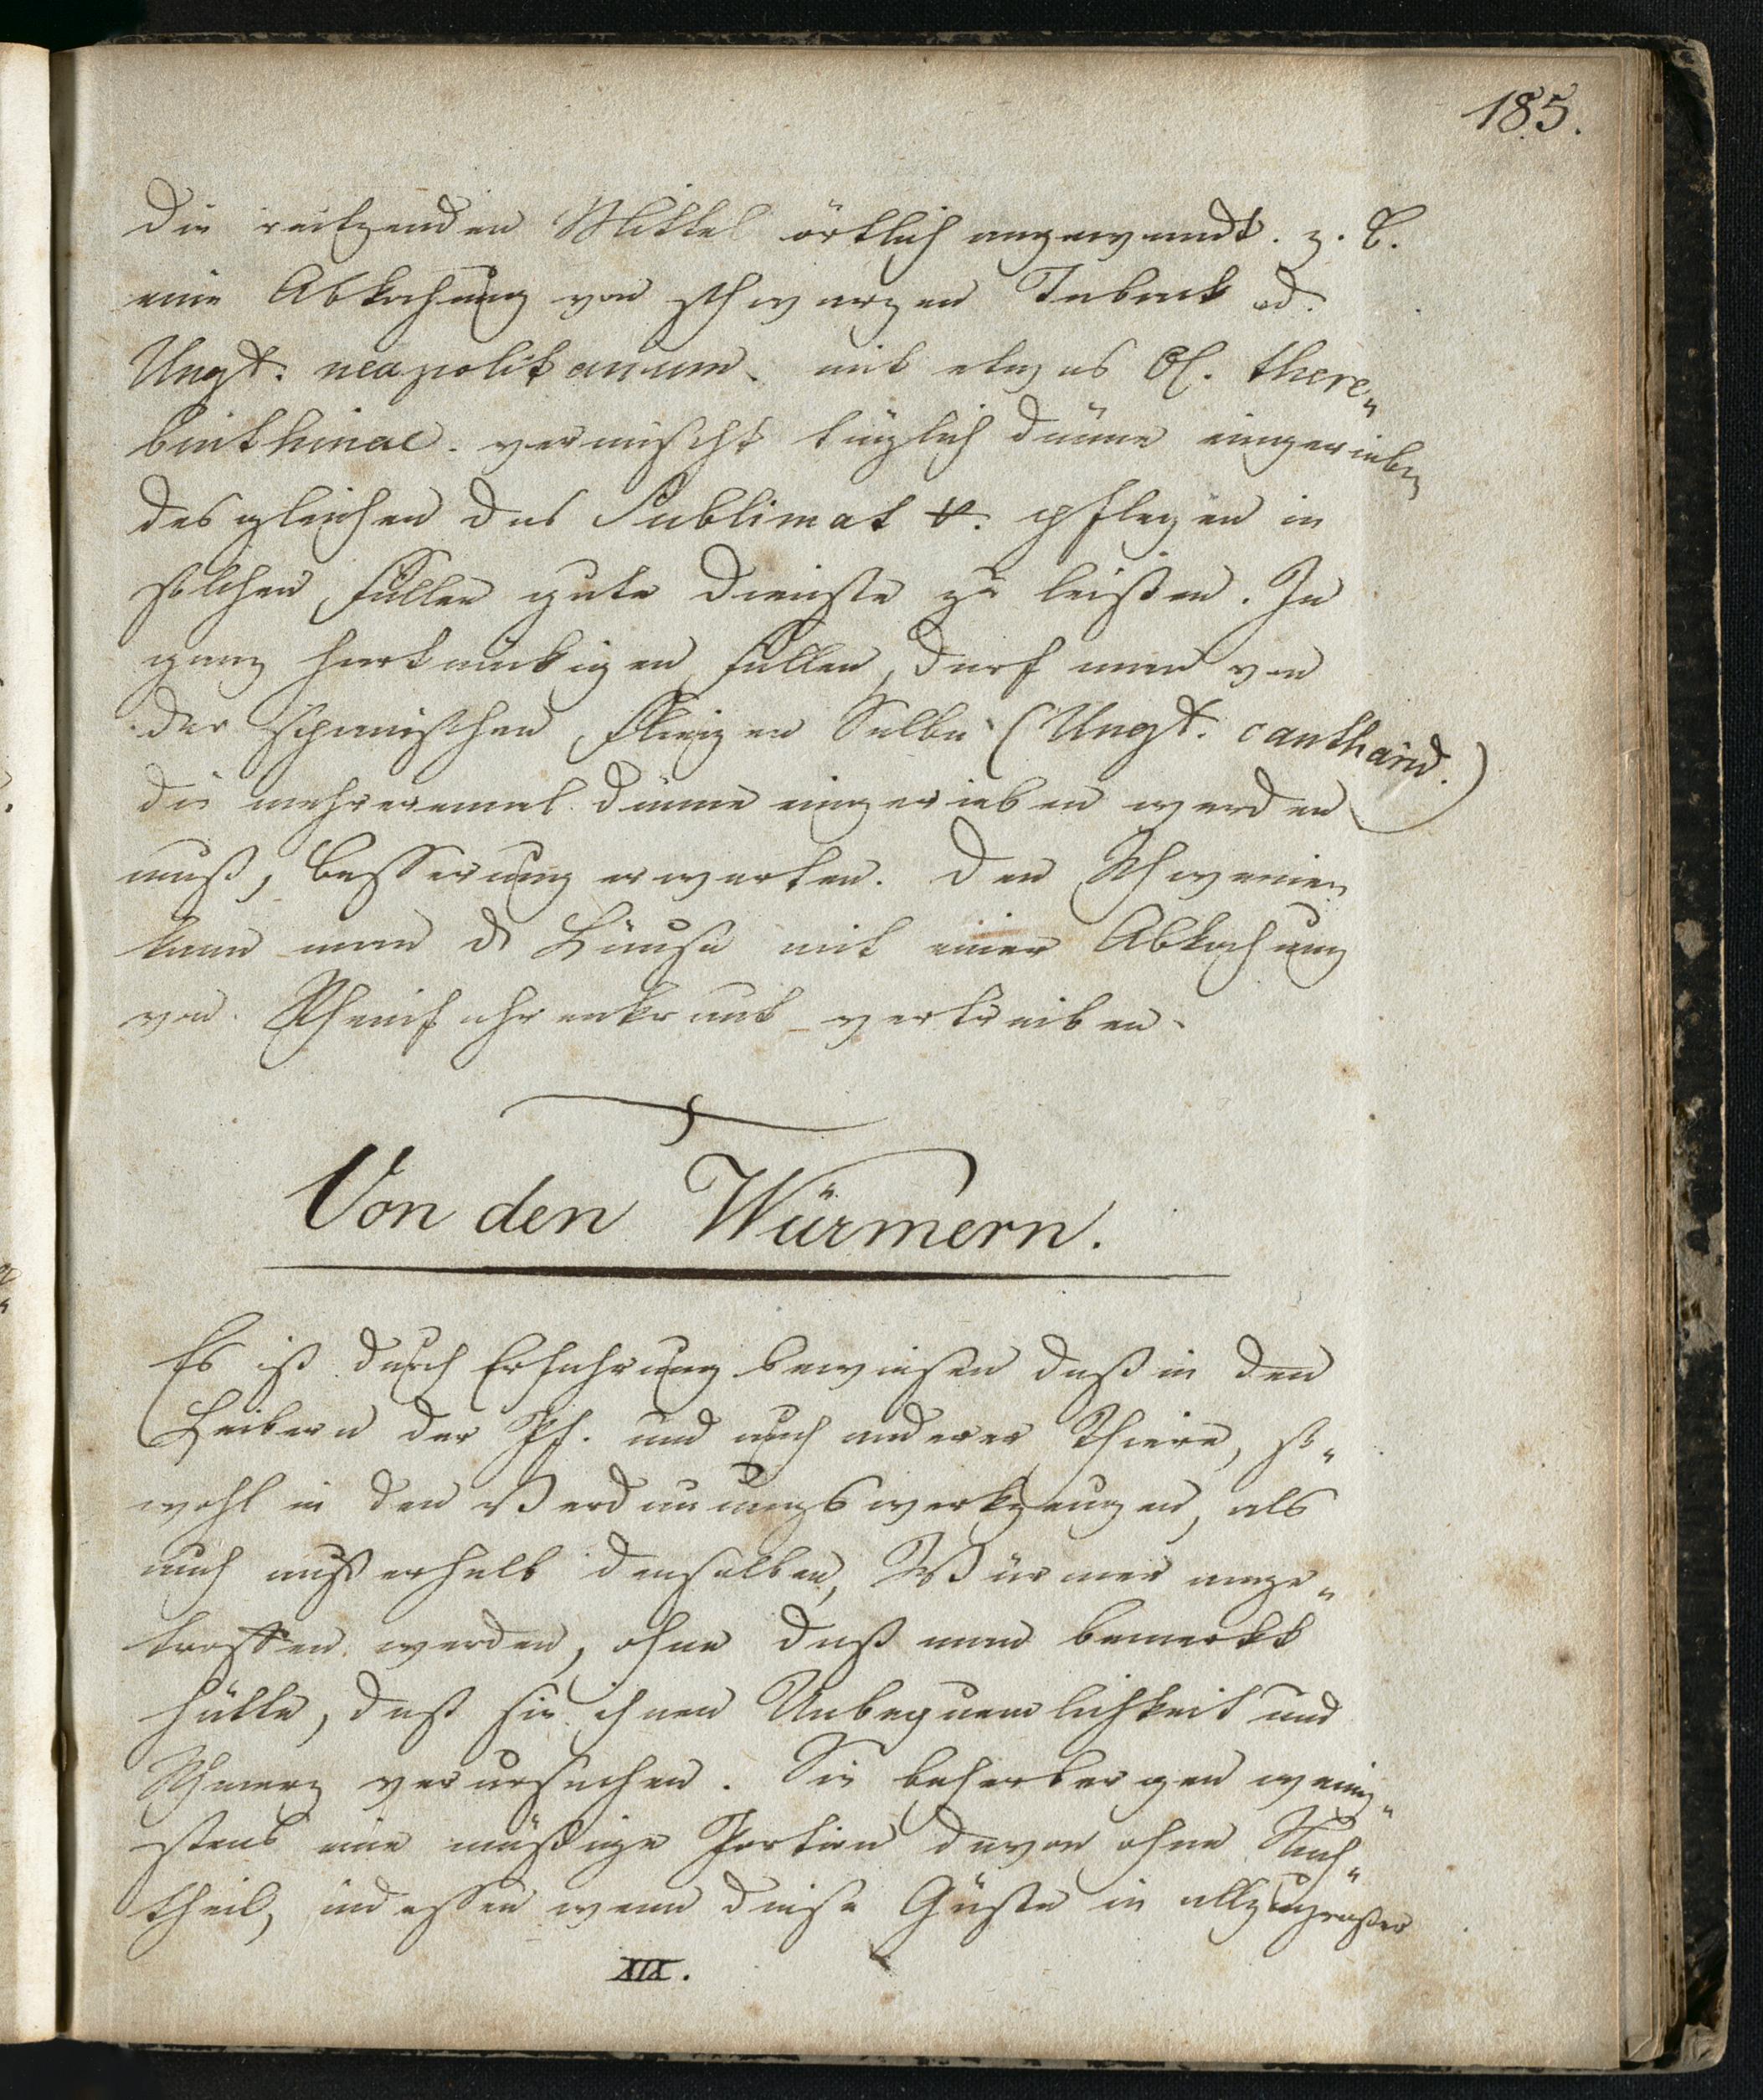 185.
die reitzenden Mittel örtlich angewandt. z. B.
eine Abkochung von schwarzen Taback od.
Ungt. neapolitanum. mit etwas Ol. there„
binthinae. vermischt täglich dünne eingerieben
desgleichen das Sublimat &. pflegen in
solchen Fällen gute Dienste zu leisten. In
ganz hartnäckigen Fällen, darf man von
der spanischen Fliegen Salbe (Ungt. cantharid.)
die mehreremal dünne eingerieben werden
muß, Besserung erwarten. Den Schweinen
kann man d Läuse mit einer Abkochung
von. vertreiben.
Von den Würmern.
Es ist durch Erfahrung bewiesen daß in den
Leibern der Pf. und auch anderer Thiere, so„
wohl in den Verdauungswerkzeugen, als
auch ausserhalb denselben, Würmer ange„
troffen werden, ohne daß man bemerkt
hätte, daß sie ihnen Unbequemlichkeit und
Schmerz verursachen. Sie beherbergen wenig„
stens eine mäßige Portion davon ohne Nach„
theil, indessen wenn diese Gäste in allzugroßer
XIX.